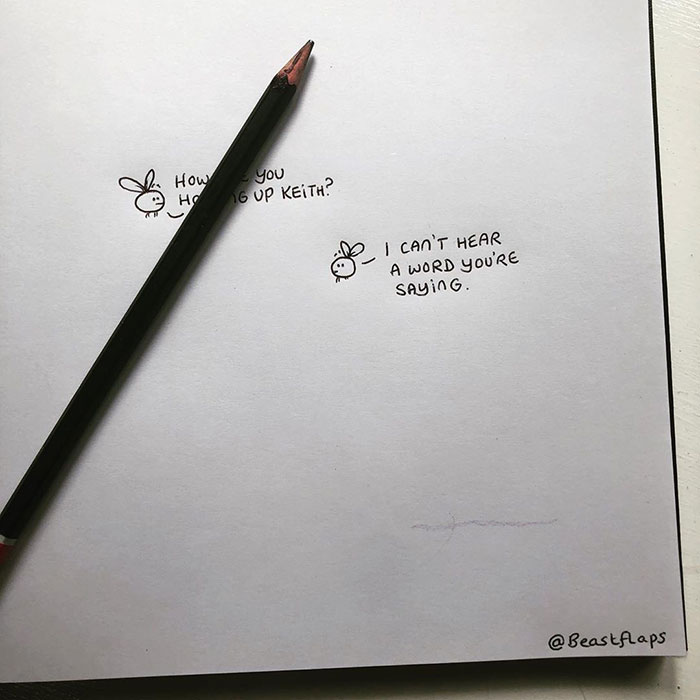 How you
H G UP KEiTH?
I CAN'T HEAR
A WORD YOU'RE
SAYiNG.
@Beastflaps